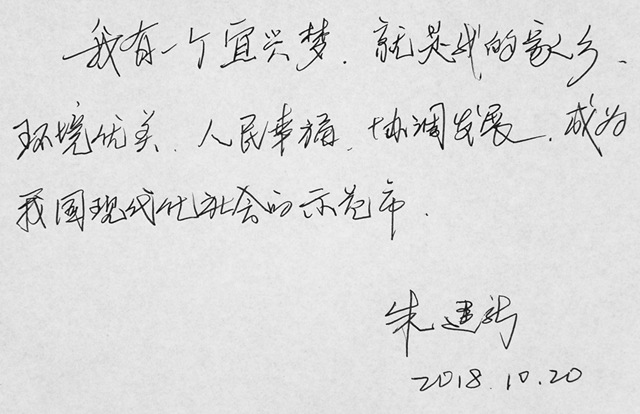 我有一个宜兴梦，就是我的家乡，
环境优美，人民幸福，协调发展，成为
我国现代化社会的示范市．
朱建新
2018.10.20